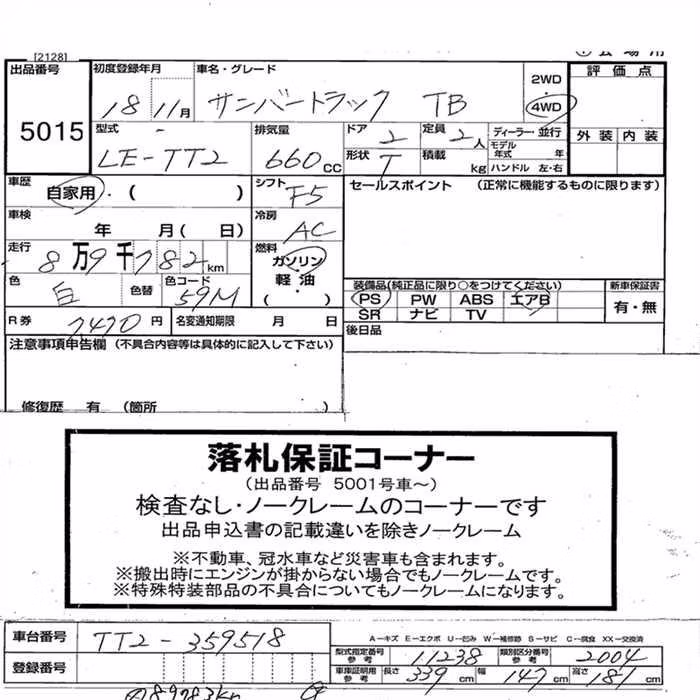 [2128]
出品番号 5015
初度登録年月 18 11月
車名・グレード サンバートラック TB
2WD
4WD
評価点
外装 内装
型式 LE-TT2
排気量 660cc
ドア 2
定員 2人
ディーラー・並行
モデル年式 年
形状 T
積載 kg
ハンドル 左・右
車歴 自家用・( )
シフト F5
セールスポイント (正常に機能するものに限ります)
車検 年 月( 日)
冷房 AC
走行 8万9千782km
燃料 ガソリン・軽油 ( )
色 白
色替
色コード 59M
装備品(純正品に限り○をつけてください)
新車保証書
PS PW ABS エアB
有・無
SR ナビ TV
R券 7470円
名変通知期限 月 日
後日品
注意事項申告欄 (不具合内容等は具体的に記入して下さい)
修復歴 有 (箇所 )
落札保証コーナー
(出品番号 5001号車～)
検査なし・ノークレームのコーナーです
出品申込書の記載違いを除きノークレーム
※不動車、冠水車など災害車も含まれます。
※搬出時にエンジンが掛からない場合でもノークレームです。
※特殊特装部品の不具合についてもノークレームになります。
車台番号 TT2-359518
A－キズ E－エクボ U－凹み W－補修跡 S－サビ C－腐食 XX－交換済
型式指定番号参考 11238
類別区分番号参考 2004
登録番号
車庫証明用参考 長さ 339cm 幅 147cm 高さ 181cm